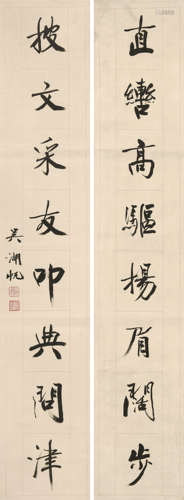 直轡高驅楊眉闊步
披文采友叩典問津
吳湖帆